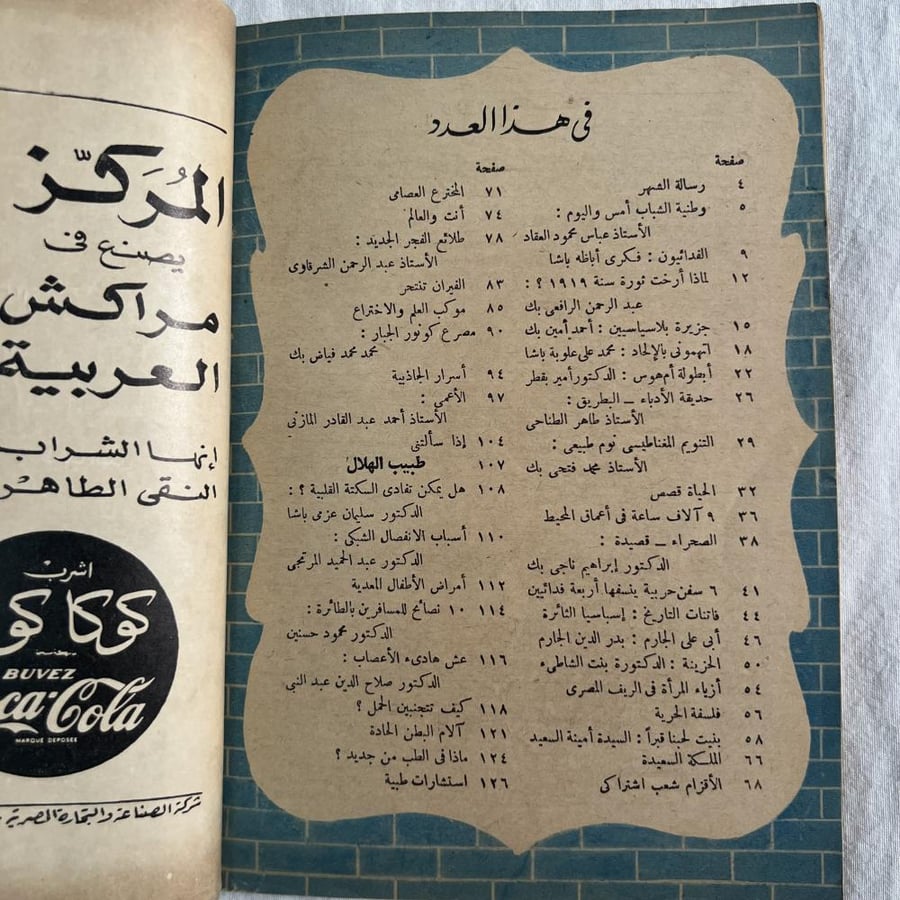 في هذا العدد
صفحة
٤ رسالة الشهر
٥ وطنية الشباب أمس واليوم :
الأستاذ عباس محمود العقاد
٩ الفدائيون : فكرى أباظه باشا
١٢ لماذا أرخت ثورة سنة ١٩١٩ ؟ :
عبد الرحمن الرافعى بك
١٥ جزيرة بلاسياسيين : أحمد أمين بك
١٨ اتهمونى بالإلحاد : محمد على علوبة باشا
٢٢ أبطولة أم هوس : الدكتور أمير بقطر
٢٦ حديقة الأدباء ــ البطريق :
الأستاذ طاهر الطناحى
٢٩ التنويم المغناطيسى نوم طبيعى :
الأستاذ محمد فتحى بك
٣٢ الحياة قصص
٣٦ ٩ آلاف ساعة فى أعماق المحيط
٣٨ الصحراء ــ قصيدة :
الدكتور إبراهيم ناجى بك
٤١ ٦ سفن حربية ينسفها أربعة فدائيين
٤٤ فاتنات التاريخ : إسباسيا الثائرة
٤٦ أبى على الجارم : بدر الدين الجارم
٥٠ الحزينة : الدكتورة بنت الشاطىء
٥٤ أزياء المرأة فى الريف المصرى
٥٦ فلسفة الحرية
٥٨ بنيت لحبنا قبراً : السيدة أمينة السعيد
٦٦ الملكة السعيدة
٦٨ الأقزام شعب اشتراكى
صفحة
٧١ المخترع العصامى
٧٤ أنت والعالم
٧٨ طلائع الفجر الجديد :
الأستاذ عبد الرحمن الشرقاوى
٨٣ الفيران تنتحر
٨٥ موكب العلم والاختراع
٩٠ مصرع كونور الجبار :
محمد محمد فياض بك
٩٤ أسرار الجاذبية
٩٧ الأعمى :
الأستاذ أحمد عبد القادر المازنى
١٠٤ إذا سألتنى
١٠٧ طبيب الهلال
١٠٨ هل يمكن تفادى السكتة القلبية ؟ :
الدكتور سليمان عزمى باشا
١١٠ أسباب الانفصال الشبكى :
الدكتور عبد الحميد المرتجى
١١٢ أمراض الأطفال المعدية
١١٤ ١٠ نصائح للمسافرين بالطائرة :
الدكتور محمود حسنين
١١٦ عش هادىء الأعصاب :
الدكتور صلاح الدين عبد النبى
١١٨ كيف تتجنبين الحمل ؟
١٢١ آلام البطن الحادة
١٢٤ ماذا فى الطب من جديد ؟
١٢٦ استشارات طبية
المُركّز
يصنع فى
مراكش
العربية
إنها الشراب
النقى الطاهر
اشرب
كوكا كو
BUVEZ
ca-Cola
MARQUE DEPOSEE
شركة الصناعة والتجارة المصرية